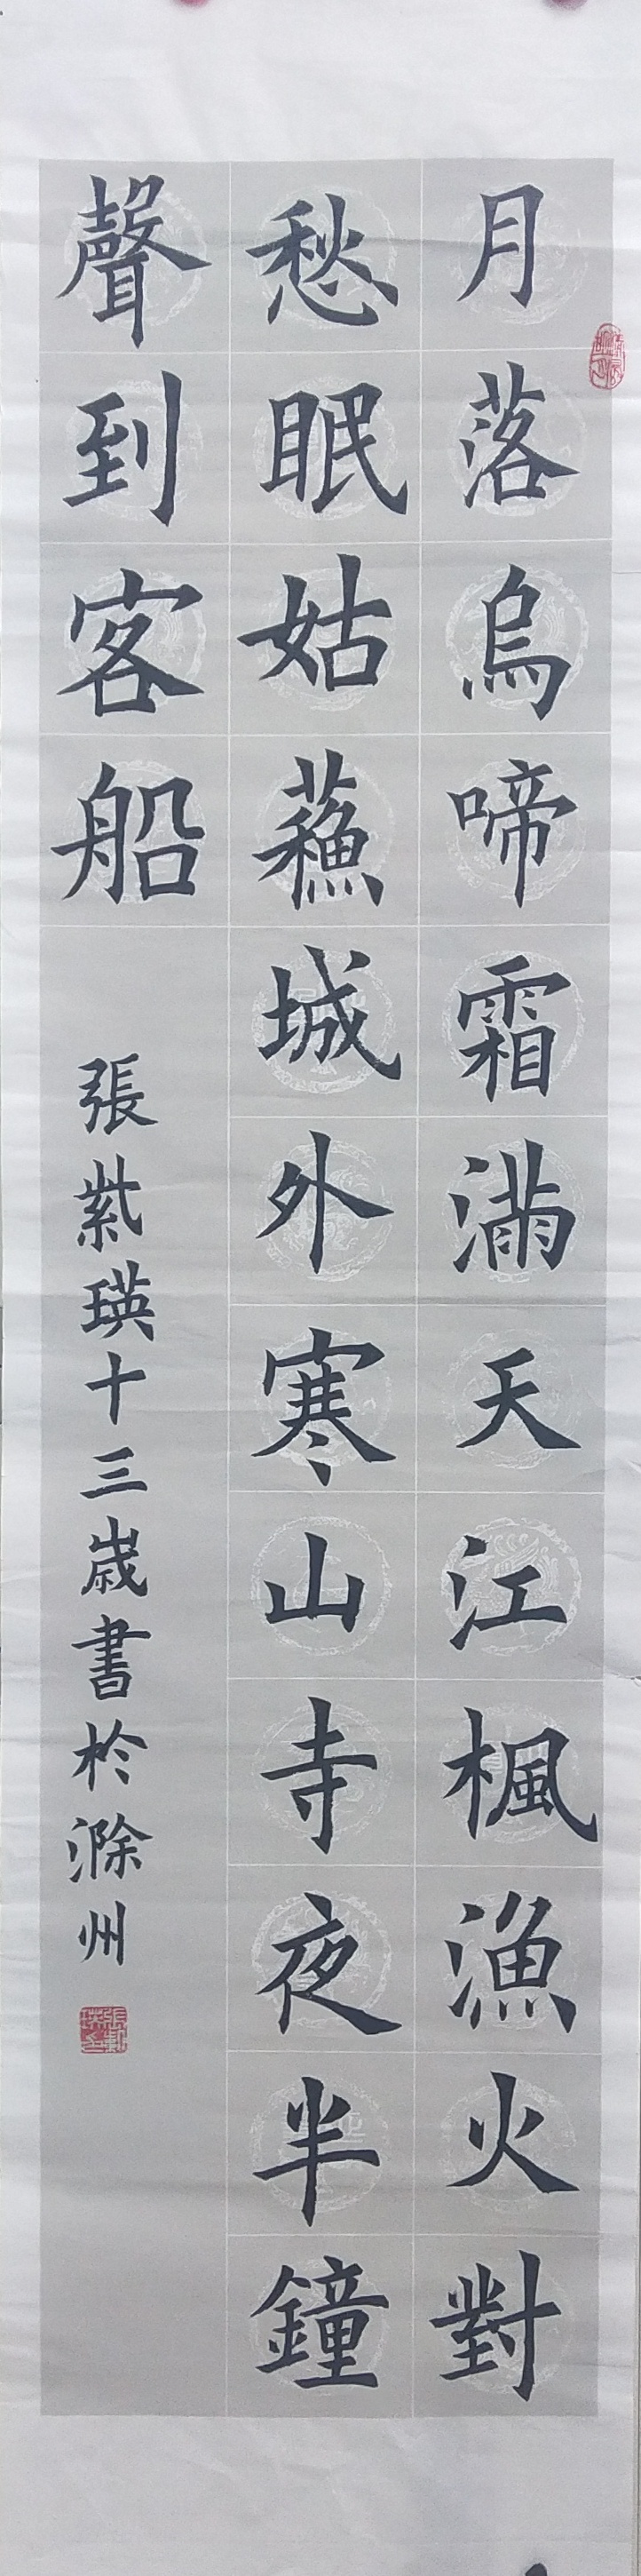 月落烏啼霜滿天江楓漁火對
愁眠姑蘓城外寒山寺夜半鐘
聲到客船
張紫瑛十三歲書於滁州